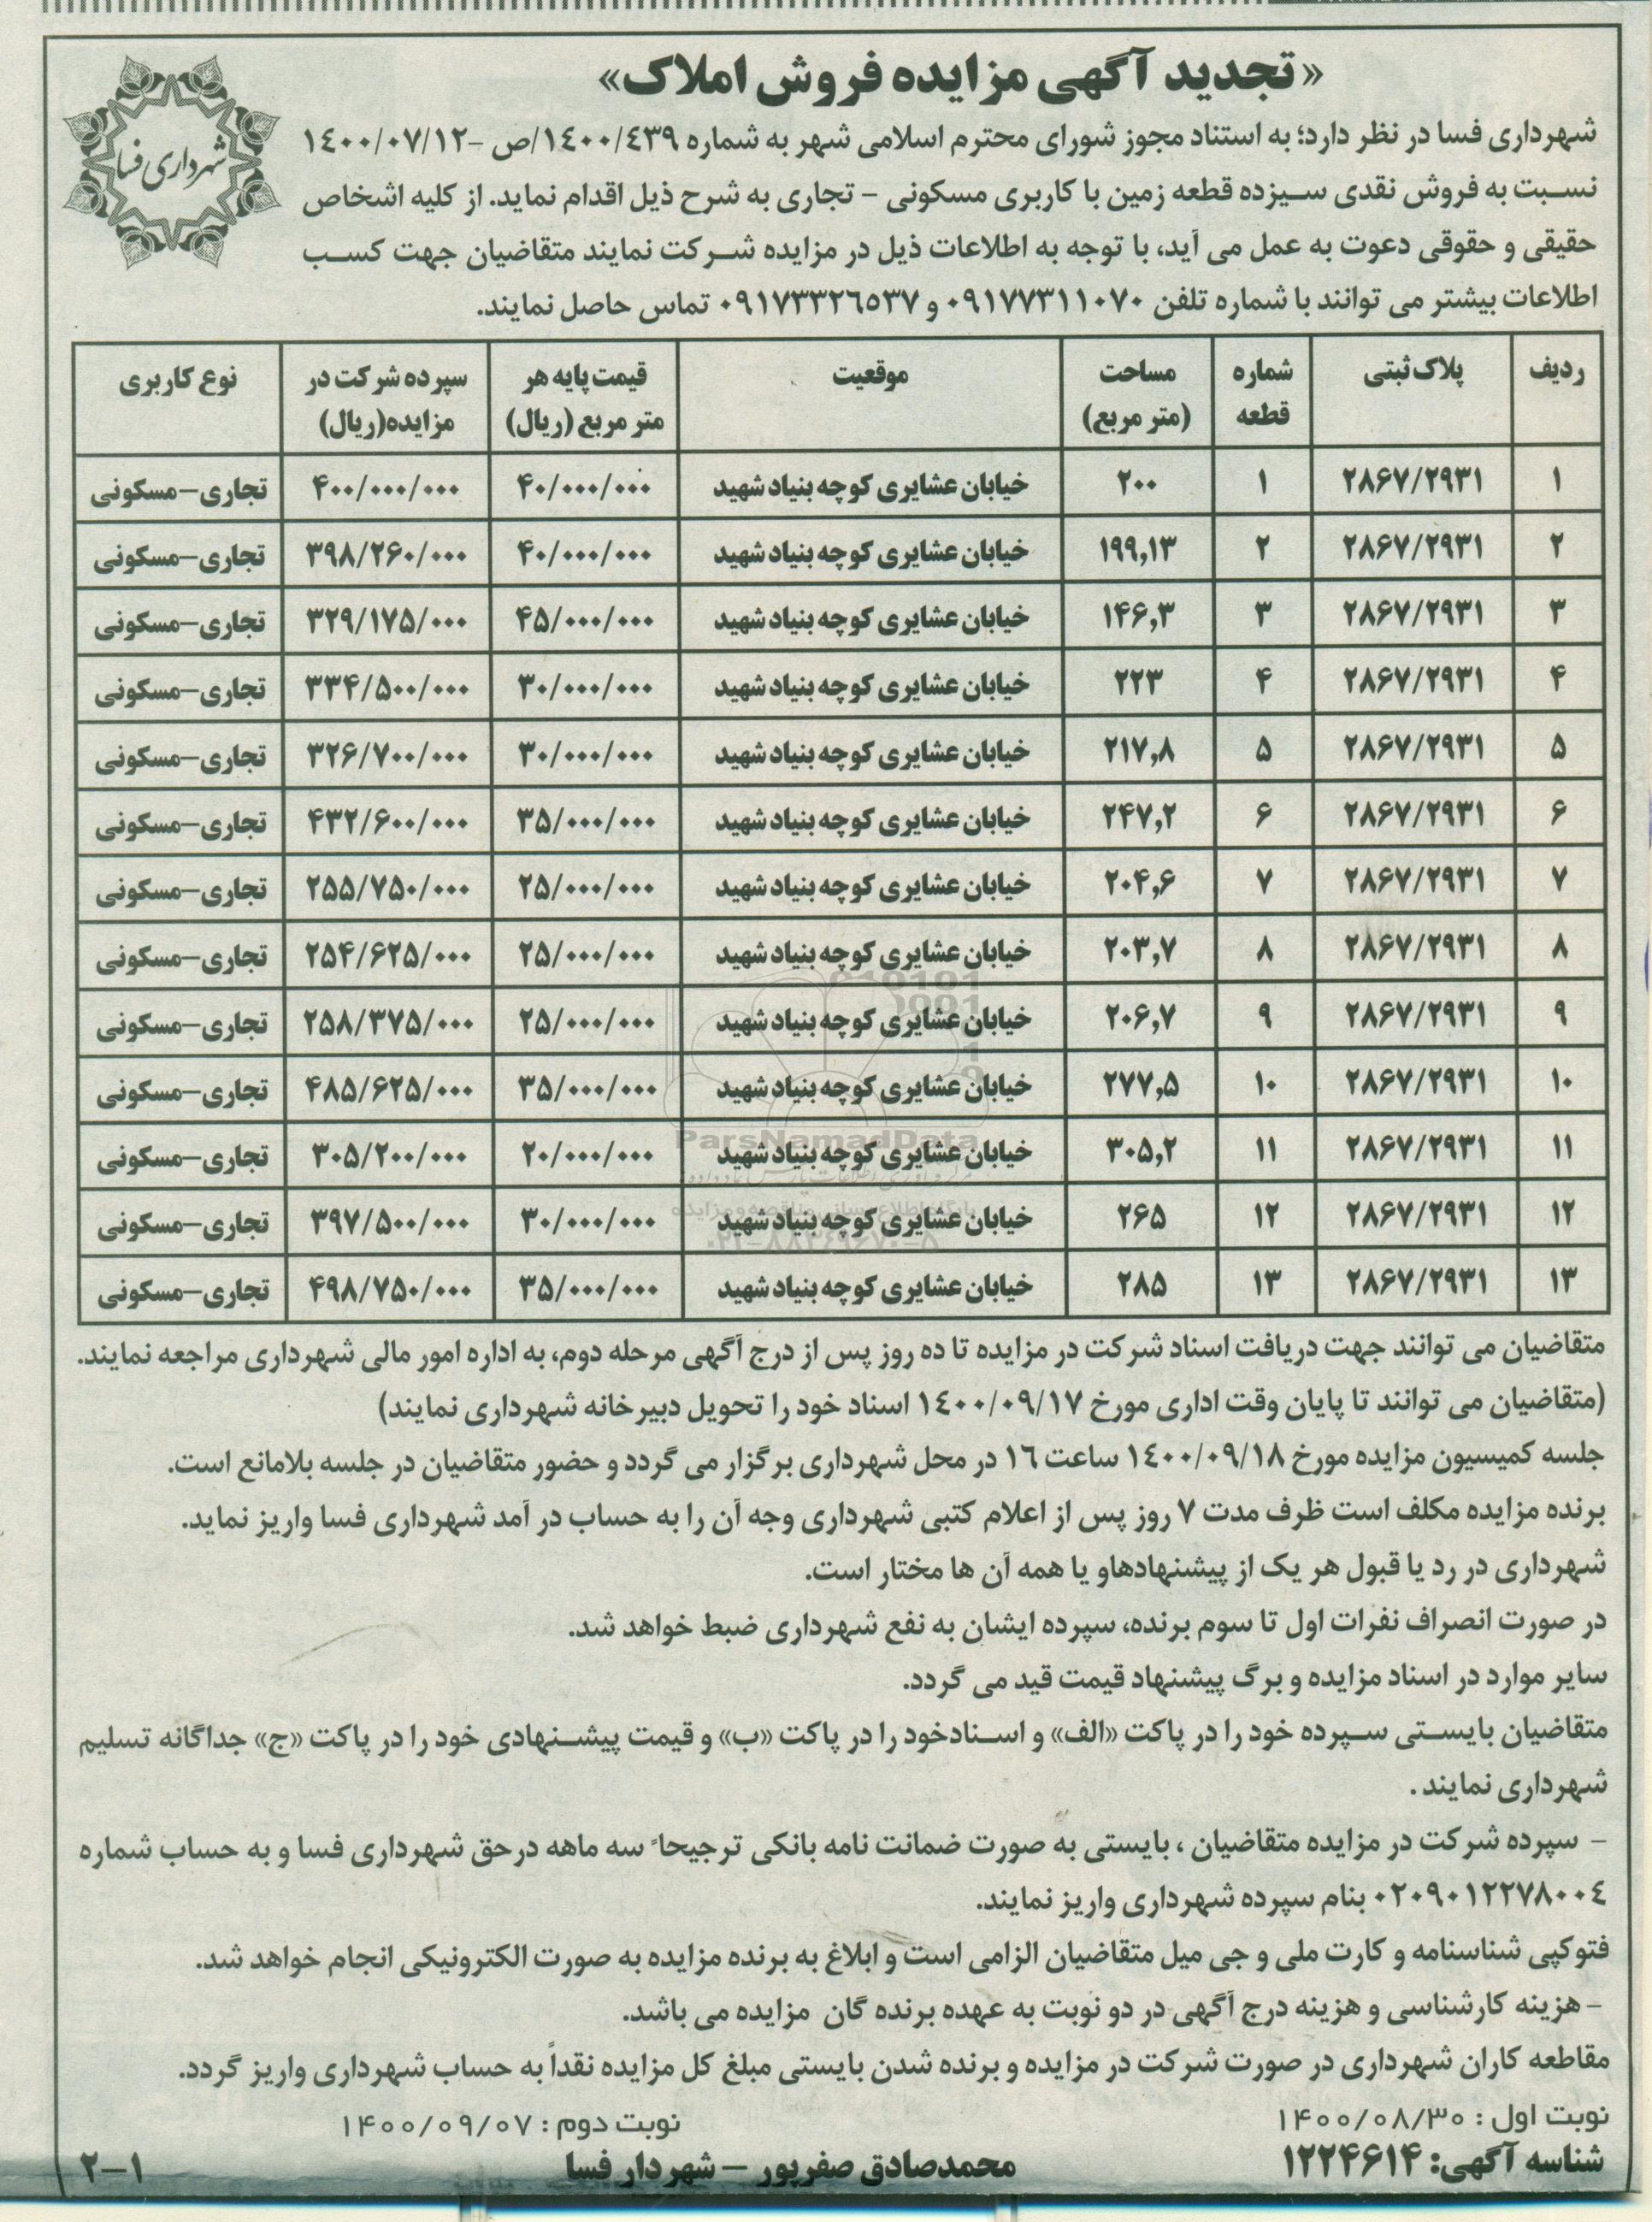 «تجدید آگهی مزایده فروش املاک»
شهرداری فسا
شهرداری فسا در نظر دارد؛ به استناد مجوز شورای محترم اسلامی شهر به شماره ۱۴۰۰/۴۳۹/ص -۱۴۰۰/۰۷/۱۲
نسبت به فروش نقدی سیزده قطعه زمین با کاربری مسکونی - تجاری به شرح ذیل اقدام نماید. از کلیه اشخاص
حقیقی و حقوقی دعوت به عمل می آید، با توجه به اطلاعات ذیل در مزایده شرکت نمایند متقاضیان جهت کسب
اطلاعات بیشتر می توانند با شماره تلفن ۰۹۱۷۷۳۱۱۰۷۰ و ۰۹۱۷۳۳۲۶۵۳۷ تماس حاصل نمایند.
ردیف پلاک ثبتی شماره قطعه مساحت (متر مربع) موقعیت قیمت پایه هر متر مربع (ریال) سپرده شرکت در مزایده(ریال) نوع کاربری
۱ ۲۸۶۷/۲۹۳۱ ۱ ۲۰۰ خیابان عشایری کوچه بنیاد شهید ۴۰/۰۰۰/۰۰۰ ۴۰۰/۰۰۰/۰۰۰ تجاری-مسکونی
۲ ۲۸۶۷/۲۹۳۱ ۲ ۱۹۹,۱۳ خیابان عشایری کوچه بنیاد شهید ۴۰/۰۰۰/۰۰۰ ۳۹۸/۲۶۰/۰۰۰ تجاری-مسکونی
۳ ۲۸۶۷/۲۹۳۱ ۳ ۱۴۶,۳ خیابان عشایری کوچه بنیاد شهید ۴۵/۰۰۰/۰۰۰ ۳۲۹/۱۷۵/۰۰۰ تجاری-مسکونی
۴ ۲۸۶۷/۲۹۳۱ ۴ ۲۲۳ خیابان عشایری کوچه بنیاد شهید ۳۰/۰۰۰/۰۰۰ ۳۳۴/۵۰۰/۰۰۰ تجاری-مسکونی
۵ ۲۸۶۷/۲۹۳۱ ۵ ۲۱۷,۸ خیابان عشایری کوچه بنیاد شهید ۳۰/۰۰۰/۰۰۰ ۳۲۶/۷۰۰/۰۰۰ تجاری-مسکونی
۶ ۲۸۶۷/۲۹۳۱ ۶ ۲۴۷,۲ خیابان عشایری کوچه بنیاد شهید ۳۵/۰۰۰/۰۰۰ ۴۳۲/۶۰۰/۰۰۰ تجاری-مسکونی
۷ ۲۸۶۷/۲۹۳۱ ۷ ۲۰۴,۶ خیابان عشایری کوچه بنیاد شهید ۲۵/۰۰۰/۰۰۰ ۲۵۵/۷۵۰/۰۰۰ تجاری-مسکونی
۸ ۲۸۶۷/۲۹۳۱ ۸ ۲۰۳,۷ خیابان عشایری کوچه بنیاد شهید ۲۵/۰۰۰/۰۰۰ ۲۵۴/۶۲۵/۰۰۰ تجاری-مسکونی
۹ ۲۸۶۷/۲۹۳۱ ۹ ۲۰۶,۷ خیابان عشایری کوچه بنیاد شهید ۲۵/۰۰۰/۰۰۰ ۲۵۸/۳۷۵/۰۰۰ تجاری-مسکونی
۱۰ ۲۸۶۷/۲۹۳۱ ۱۰ ۲۷۷,۵ خیابان عشایری کوچه بنیاد شهید ۳۵/۰۰۰/۰۰۰ ۴۸۵/۶۲۵/۰۰۰ تجاری-مسکونی
۱۱ ۲۸۶۷/۲۹۳۱ ۱۱ ۳۰۵,۲ خیابان عشایری کوچه بنیاد شهید ۲۰/۰۰۰/۰۰۰ ۳۰۵/۲۰۰/۰۰۰ تجاری-مسکونی
۱۲ ۲۸۶۷/۲۹۳۱ ۱۲ ۲۶۵ خیابان عشایری کوچه بنیاد شهید ۳۰/۰۰۰/۰۰۰ ۳۹۷/۵۰۰/۰۰۰ تجاری-مسکونی
۱۳ ۲۸۶۷/۲۹۳۱ ۱۳ ۲۸۵ خیابان عشایری کوچه بنیاد شهید ۳۵/۰۰۰/۰۰۰ ۴۹۸/۷۵۰/۰۰۰ تجاری-مسکونی
ParsNamadData
متقاضیان می توانند جهت دریافت اسناد شرکت در مزایده تا ده روز پس از درج آگهی مرحله دوم، به اداره امور مالی شهرداری مراجعه نمایند.
(متقاضیان می توانند تا پایان وقت اداری مورخ ۱۴۰۰/۰۹/۱۷ اسناد خود را تحویل دبیرخانه شهرداری نمایند)
جلسه کمیسیون مزایده مورخ ۱۴۰۰/۰۹/۱۸ ساعت ۱۶ در محل شهرداری برگزار می گردد و حضور متقاضیان در جلسه بلامانع است.
برنده مزایده مکلف است ظرف مدت ۷ روز پس از اعلام کتبی شهرداری وجه آن را به حساب در آمد شهرداری فسا واریز نماید.
شهرداری در رد یا قبول هر یک از پیشنهادهاو یا همه آن ها مختار است.
در صورت انصراف نفرات اول تا سوم برنده، سپرده ایشان به نفع شهرداری ضبط خواهد شد.
سایر موارد در اسناد مزایده و برگ پیشنهاد قیمت قید می گردد.
متقاضیان بایستی سپرده خود را در پاکت «الف» و اسنادخود را در پاکت «ب» و قیمت پیشنهادی خود را در پاکت «ج» جداگانه تسلیم
شهرداری نمایند.
- سپرده شرکت در مزایده متقاضیان ، بایستی به صورت ضمانت نامه بانکی ترجیحاً سه ماهه درحق شهرداری فسا و به حساب شماره
۰۲۰۹۰۱۲۲۷۸۰۰۴ بنام سپرده شهرداری واریز نمایند.
فتوکپی شناسنامه و کارت ملی و جی میل متقاضیان الزامی است و ابلاغ به برنده مزایده به صورت الکترونیکی انجام خواهد شد.
- هزینه کارشناسی و هزینه درج آگهی در دو نوبت به عهده برنده گان مزایده می باشد.
مقاطعه کاران شهرداری در صورت شرکت در مزایده و برنده شدن بایستی مبلغ کل مزایده نقداً به حساب شهرداری واریز گردد.
نوبت اول : ۱۴۰۰/۰۸/۳۰ نوبت دوم : ۱۴۰۰/۰۹/۰۷
شناسه آگهی: ۱۲۲۴۶۱۴ محمدصادق صفرپور - شهردار فسا ۲-۱